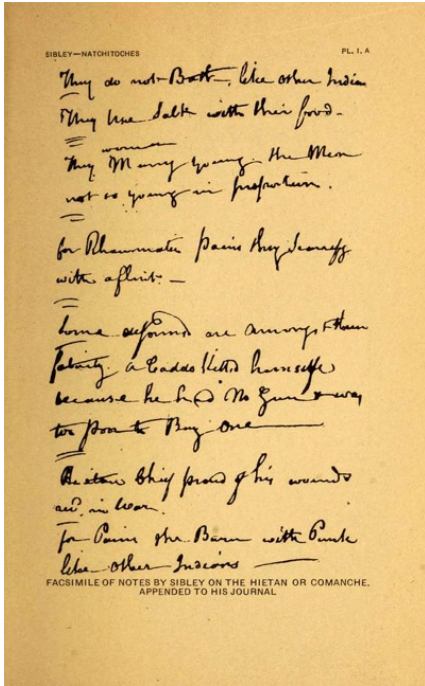 SIBLEY—NATCHITOCHES PL. I. A
They do not Bath, like other Indian
They Use Salt with their food.
women
They Marry young, the Men
not so young in proportion.
for Rheumatic pains they scarrify
with a flint. —
Some deformed are amongst them
a Caddo killed himself
because he had No Gun & was
too poor to Buy one
Hietan Chief proud of his wounds
in War.
for Pains the Burn with Punk
like other Indians
FACSIMILE OF NOTES BY SIBLEY ON THE HIETAN OR COMANCHE.
APPENDED TO HIS JOURNAL